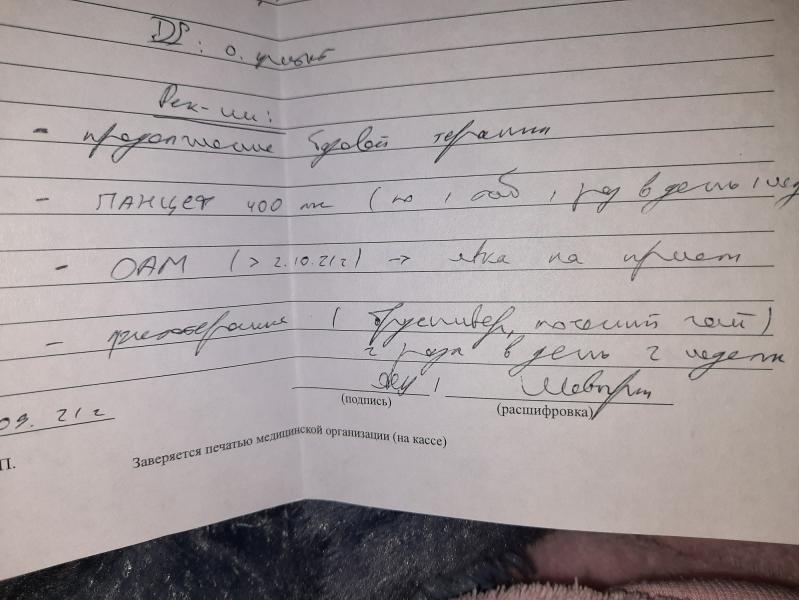 DS: о. цистит
Рек-ии:
- продолжение терапии
- ПАНЦЕФ 400 мг (по 1 таб 1 раз в день 1 нед
- ОАМ (> 2.10.21г) → явка на прием
- фитотерапия (Брусенивер, почечный чай)
2 раза в день 2 недели
(подпись) (расшифровка)
09. 21г
П. Заверяется печатью медицинской организации (на кассе)